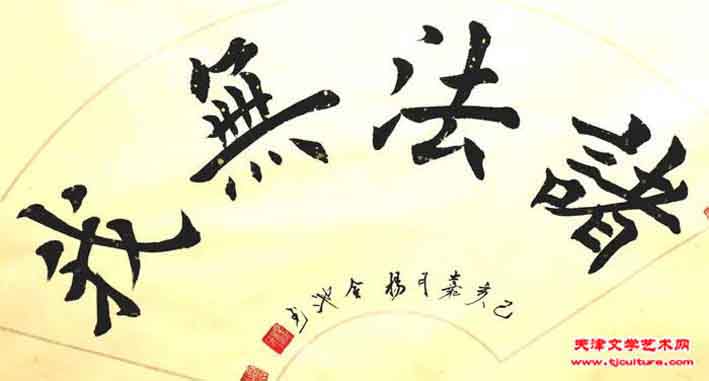 諸法無我
己亥嘉月楊金
天津文学艺术网
www.tjculture.com